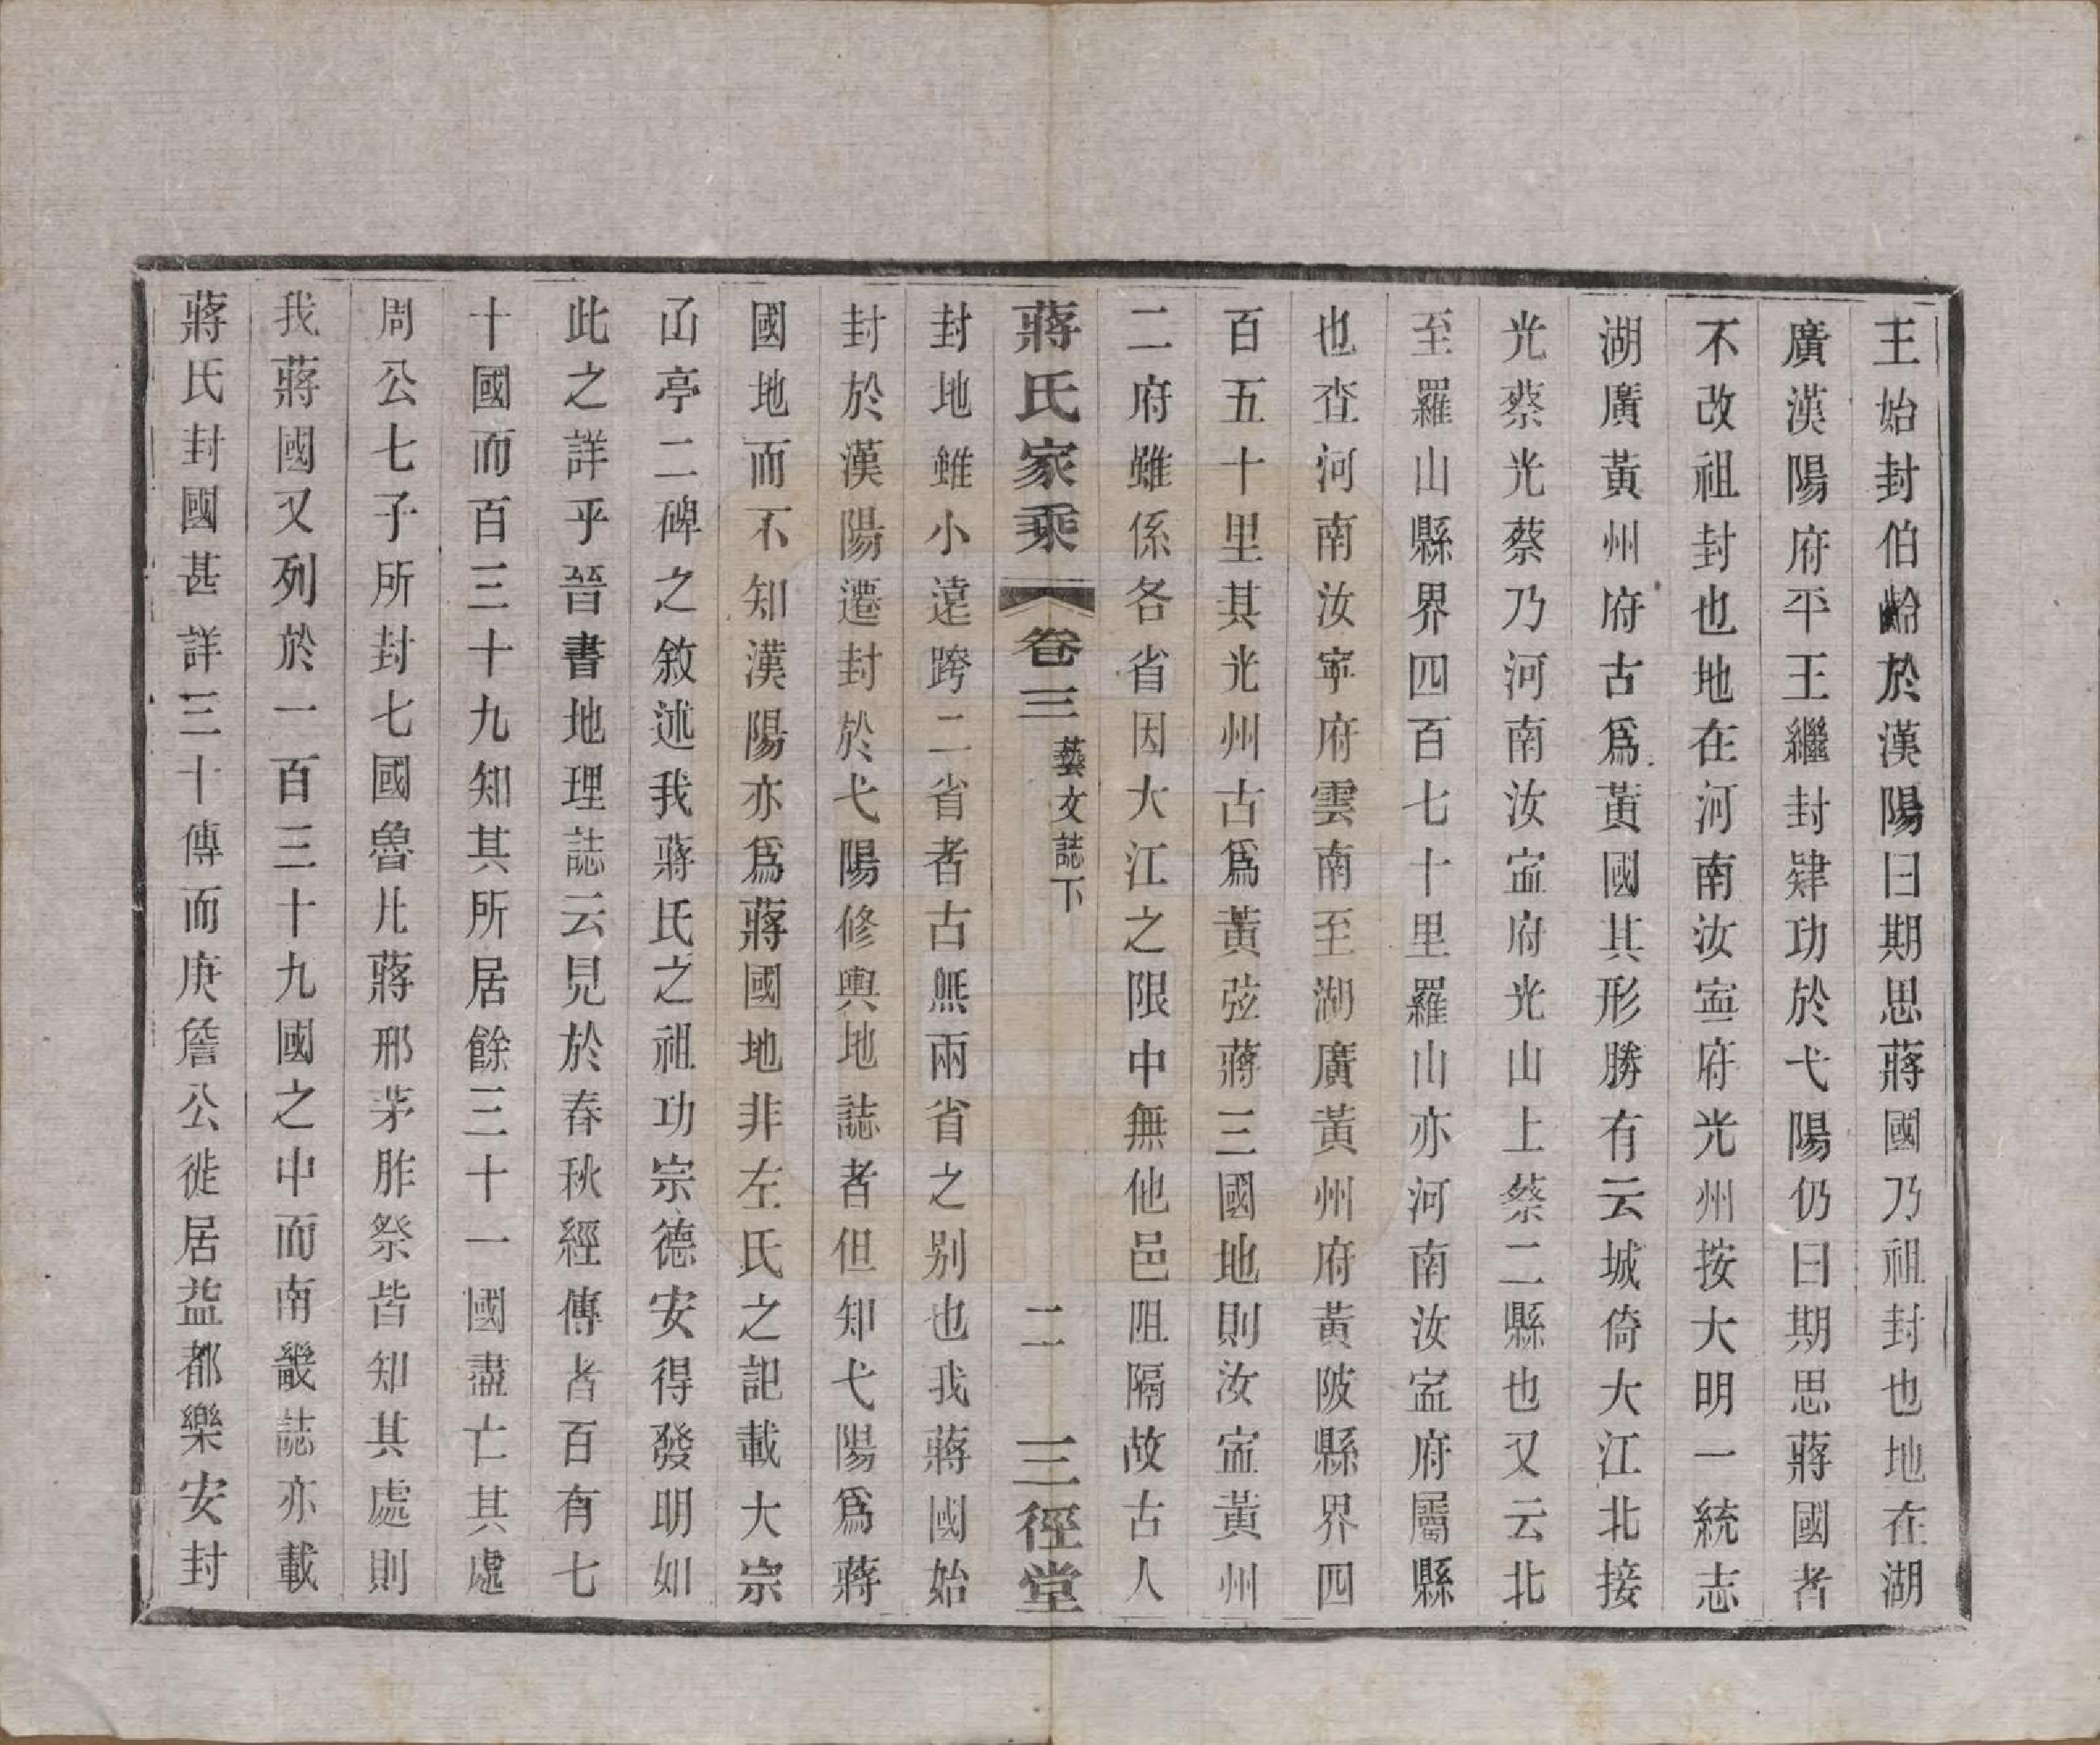 王始封伯齡於漢陽曰期思蔣國乃祖封也地在湖
廣漢陽府平王繼封肄功於弋陽仍曰期思蔣國者
不改祖封也地在河南汝寍府光州按大明一統志
湖廣黃州府古爲黃國其形勝有云城倚大江北接
光蔡光蔡乃河南汝寍府光山上蔡二縣也又云北
至羅山縣界四百七十里羅山亦河南汝寍府屬縣
也查河南汝寧府雲南至湖廣黃州府黃陂縣界四
百五十里其光州古爲黃弦蔣三國地則汝寍黃州
二府雖係各省因大江之限中無他邑阻隔故古人
蔣氏家乘 卷三 藝文誌下 二 三徑堂
封地雖小遠跨二省者古無兩省之别也我蔣國始
封於漢陽遷封於弋陽修輿地誌者但知弋陽爲蔣
國地而不知漢陽亦爲蔣國地非左氏之記載大宗
函亭二碑之敘述我蔣氏之祖功宗德安得發明如
此之詳乎晉書地理誌云見於春秋經傳者百有七
十國而百三十九知其所居餘三十一國盡亡其處
周公七子所封七國魯凡蔣邢茅胙祭皆知其處則
我蔣國又列於一百三十九國之中而南畿誌亦載
蔣氏封國甚詳三十傳而庚詹公徙居益都樂安封